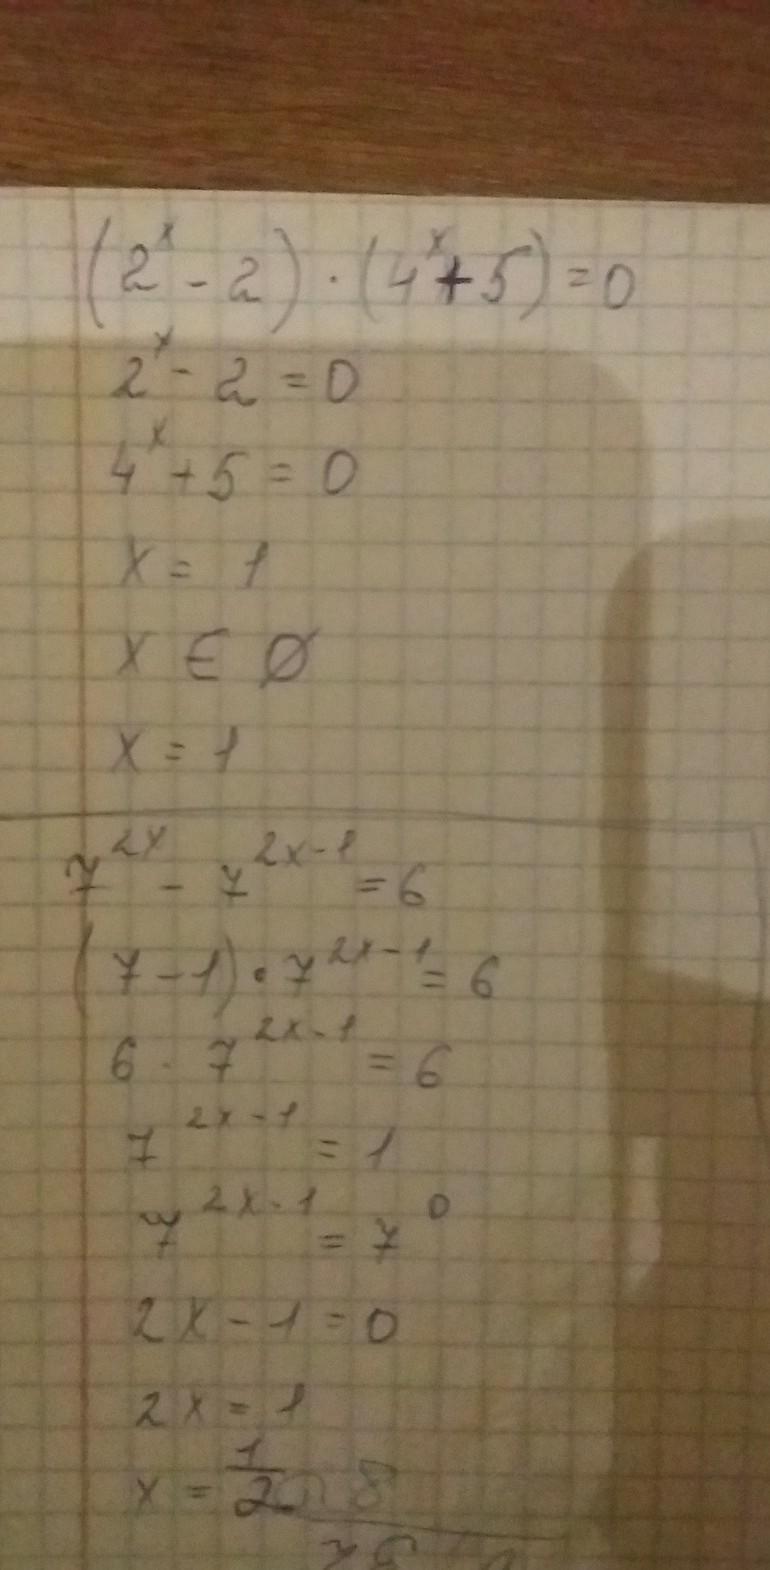 (2^x - 2) · (4^x + 5) = 0
2^x - 2 = 0
4^x + 5 = 0
x = 1
x ∈ Ø
x = 1
7^{2x} - 7^{2x-1} = 6
(7 - 1) · 7^{2x-1} = 6
6 · 7^{2x-1} = 6
7^{2x-1} = 1
7^{2x-1} = 7^0
2x - 1 = 0
2x = 1
x = 1/2